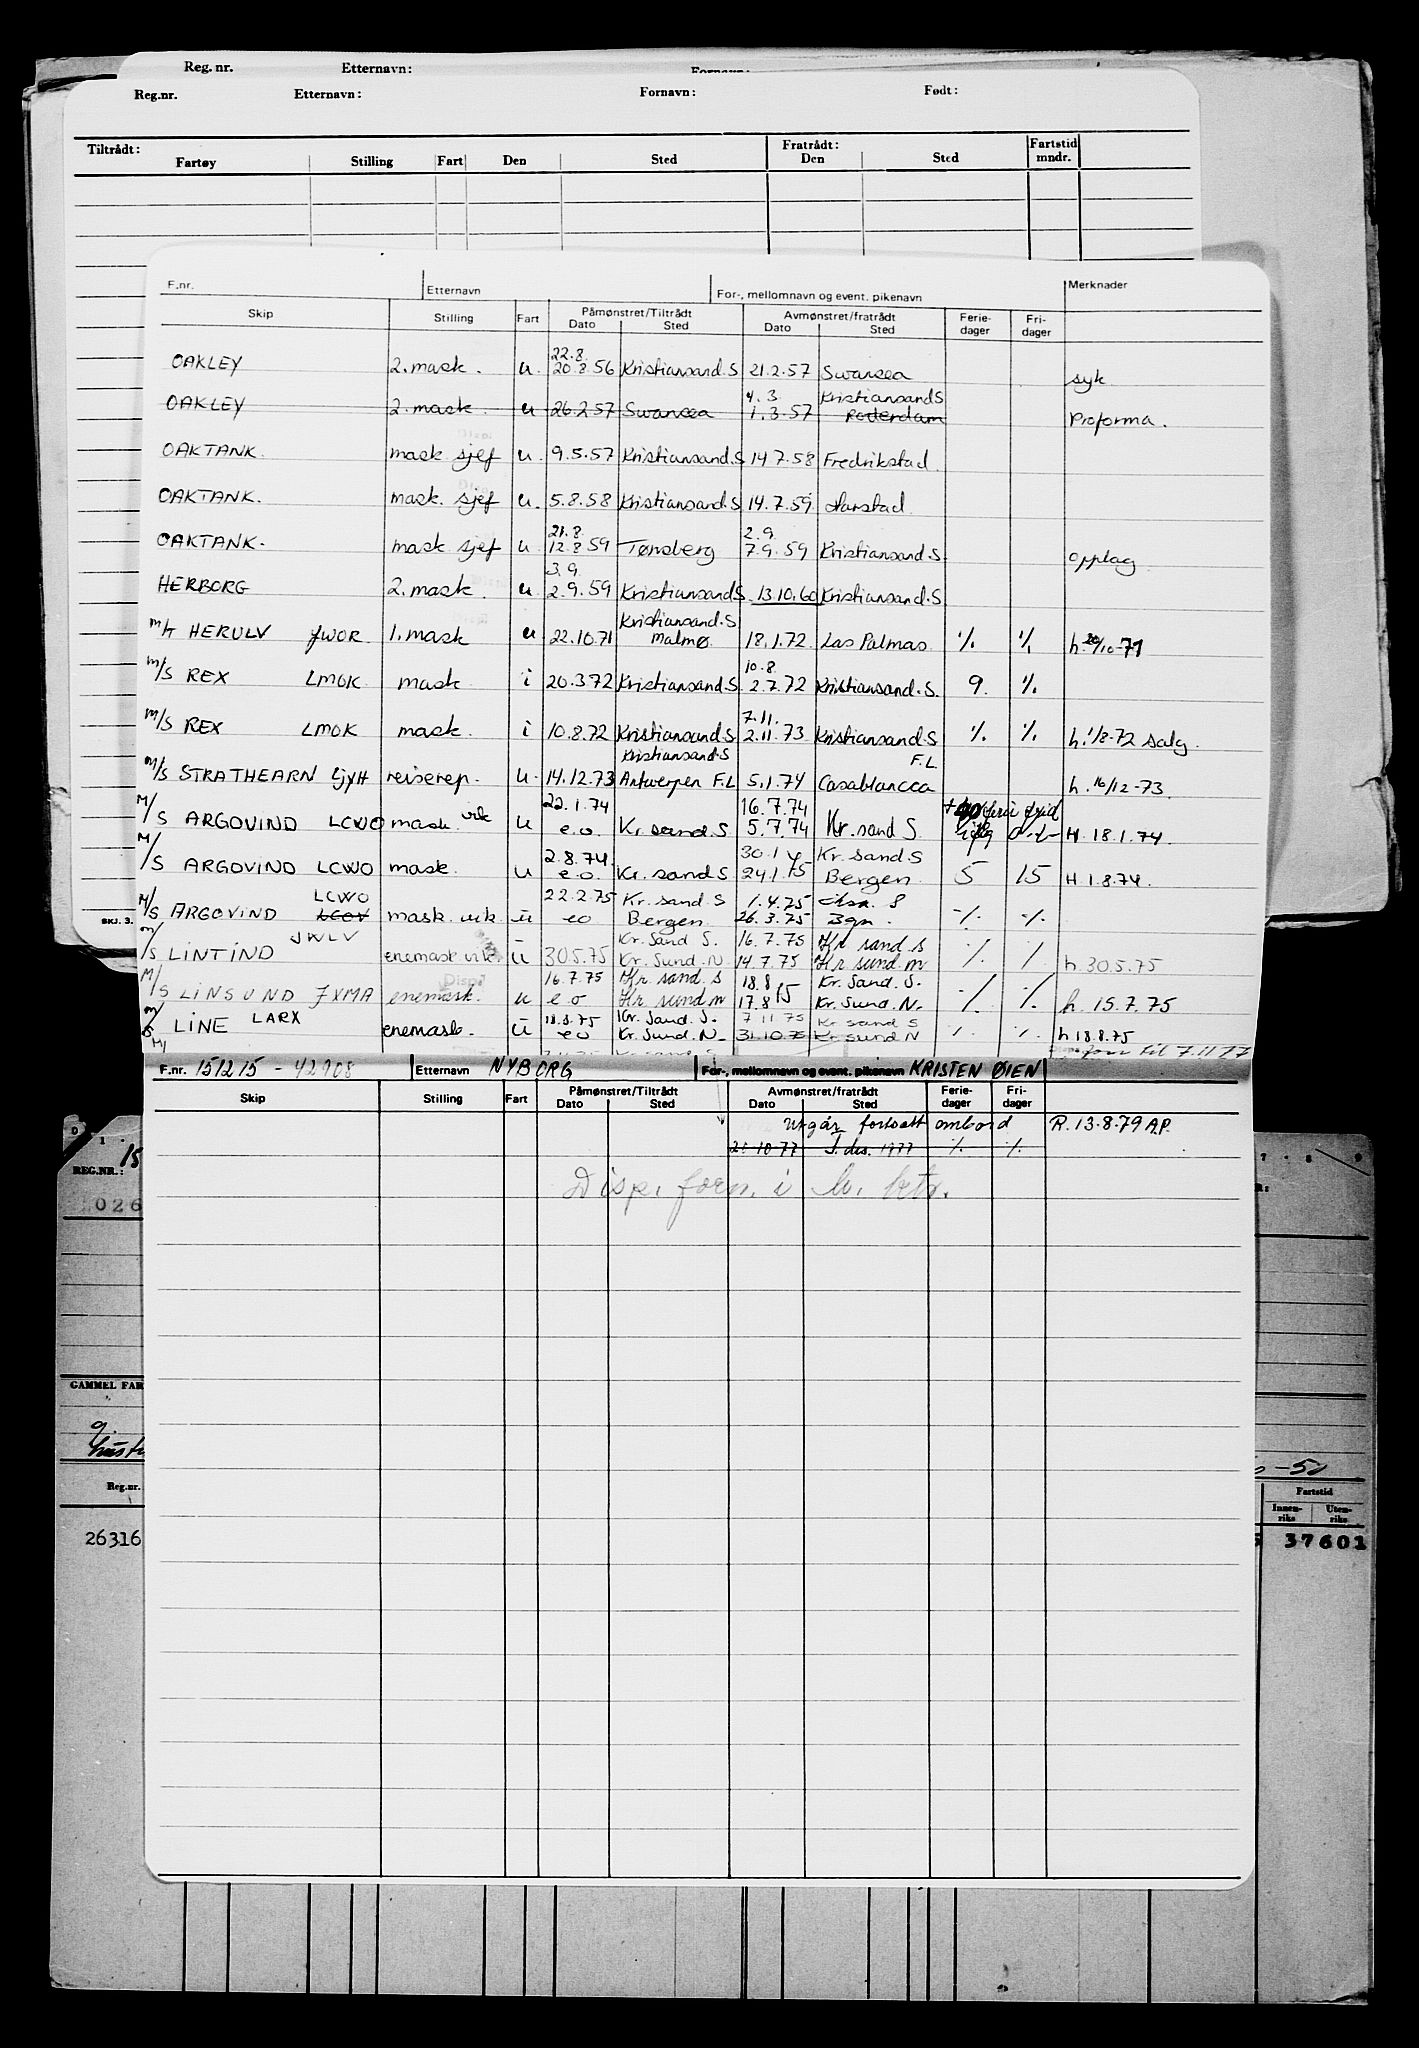 Reg. nr. Etternavn:
Reg.nr. Etternavn: Fornavn: Født:
Tiltrådt: Fratrådt: Fartstid
Fartøy Stilling Fart Den Sted Den Sted mndr.
F.nr. Etternavn For-, mellomnavn og event. pikenavn Merknader
Skip Stilling Fart Påmønstret/Tiltrådt Avmønstret/fratrådt Ferie- Fri-
Dato Sted Dato Sted dager dager
22.8.
OAKLEY 2. mask. u. 20.8.56 Kristiansand.S 21.2.57 Swansea syk
4.3. Kristiansand S
OAKLEY 2. mask. u 26.2.57 Swansea 1.3.57 Rotterdam Proforma.
OAKTANK. mask sjef u. 9.5.57 Kristiansand.S 14.7.58 Fredrikstad.
OAKTANK. mask. sjef u. 5.8.58 Kristiansand.S 14.7.59 Harstad.
21.8. 2.9.
OAKTANK. mask sjef u. 12.8.59 Tønsberg 7.9.59 Kristiansand.S. opplag.
3.9.
HERBORG 2. mask. u 2.9.59 Kristiansand S. 13.10.60 Kristiansand.S
Kristiansand.S
M/T HERULV JWOR 1. mask u 22.10.71 Malmø 18.1.72 Las Palmas. ./. ./. h. 20/10-71
10.8.
M/S REX LMOK mask i 20.3.72 Kristiansand.S 2.7.72 Kristiansand.S. 9. ./.
7.11.
M/S REX LMOK mask. i 10.8.72 Kristiansand S 2.11.73 Kristiansand S ./. ./. h. 1/8-72 salg.
Kristiansand.S F.L.
M/S STRATHEARN LJYH reiserep. u. 14.12.73 Antwerpen F.L 5.1.74 Casablancca h. 16/12-73.
22.1.74 16.7.74
M/S ARGOVIND LCWO mask. vik u e.o. Kr.sand.S 5.7.74 Kr.sand S. H 18.1.74.
2.8.74 30.1 Kr. sand S
M/S ARGOVIND LCWO mask. u e.o. Kr.sand S 24.1.75 Bergen 5 15 H 1.8.74.
LCWO 22.2.75 Kr. sand S 1.4.75
M/S ARGOVIND mask. vik. u eo Bergen. 26.3.75 Bgn. -/- -/-
JWLV Kr. Sand S. 16.7.75 Kr sand.s
M/S LINTIND enemask vik. u 30.5.75 Kr. Sund.N 14.7.75 Kr sund.n ./. ./. h.30.5.75
Disp? 16.7.75 Kr. sand. s 18.8 Kr. Sand. S.
M/S LINSUND JXMA enemask. u e o Kr sund n 17.8.75 Kr. Sund. N. ./. ./. h. 15.7.75
18.8.75 Kr. Sand. S. 7.11.75 Kr sand S
M/S LINE LARX enemask. u eo Kr. Sund. N. 31.10.75 Kr sund N ./. ./. h 18.8.75
til 7.11.77
F.nr. 151215 - 42908 Etternavn NYBORG For-, mellomnavn og event. pikenavn KRISTEN ØIEN
Skip Stilling Fart Påmønstret/Tiltrådt Avmønstret/fratrådt Ferie- Fri-
Dato Sted Dato Sted dager dager
Utgår fortsatt ombord R. 13-8-79 A.P.
10 77 des. 1977 ./. ./.
Disp. forn. i
SKJ. 3.
REG.NR.: 15
026
GAMMEL FAR
Reg.nr.
26316
-50
Fartstid
Innen-riks Uten-riks
37601